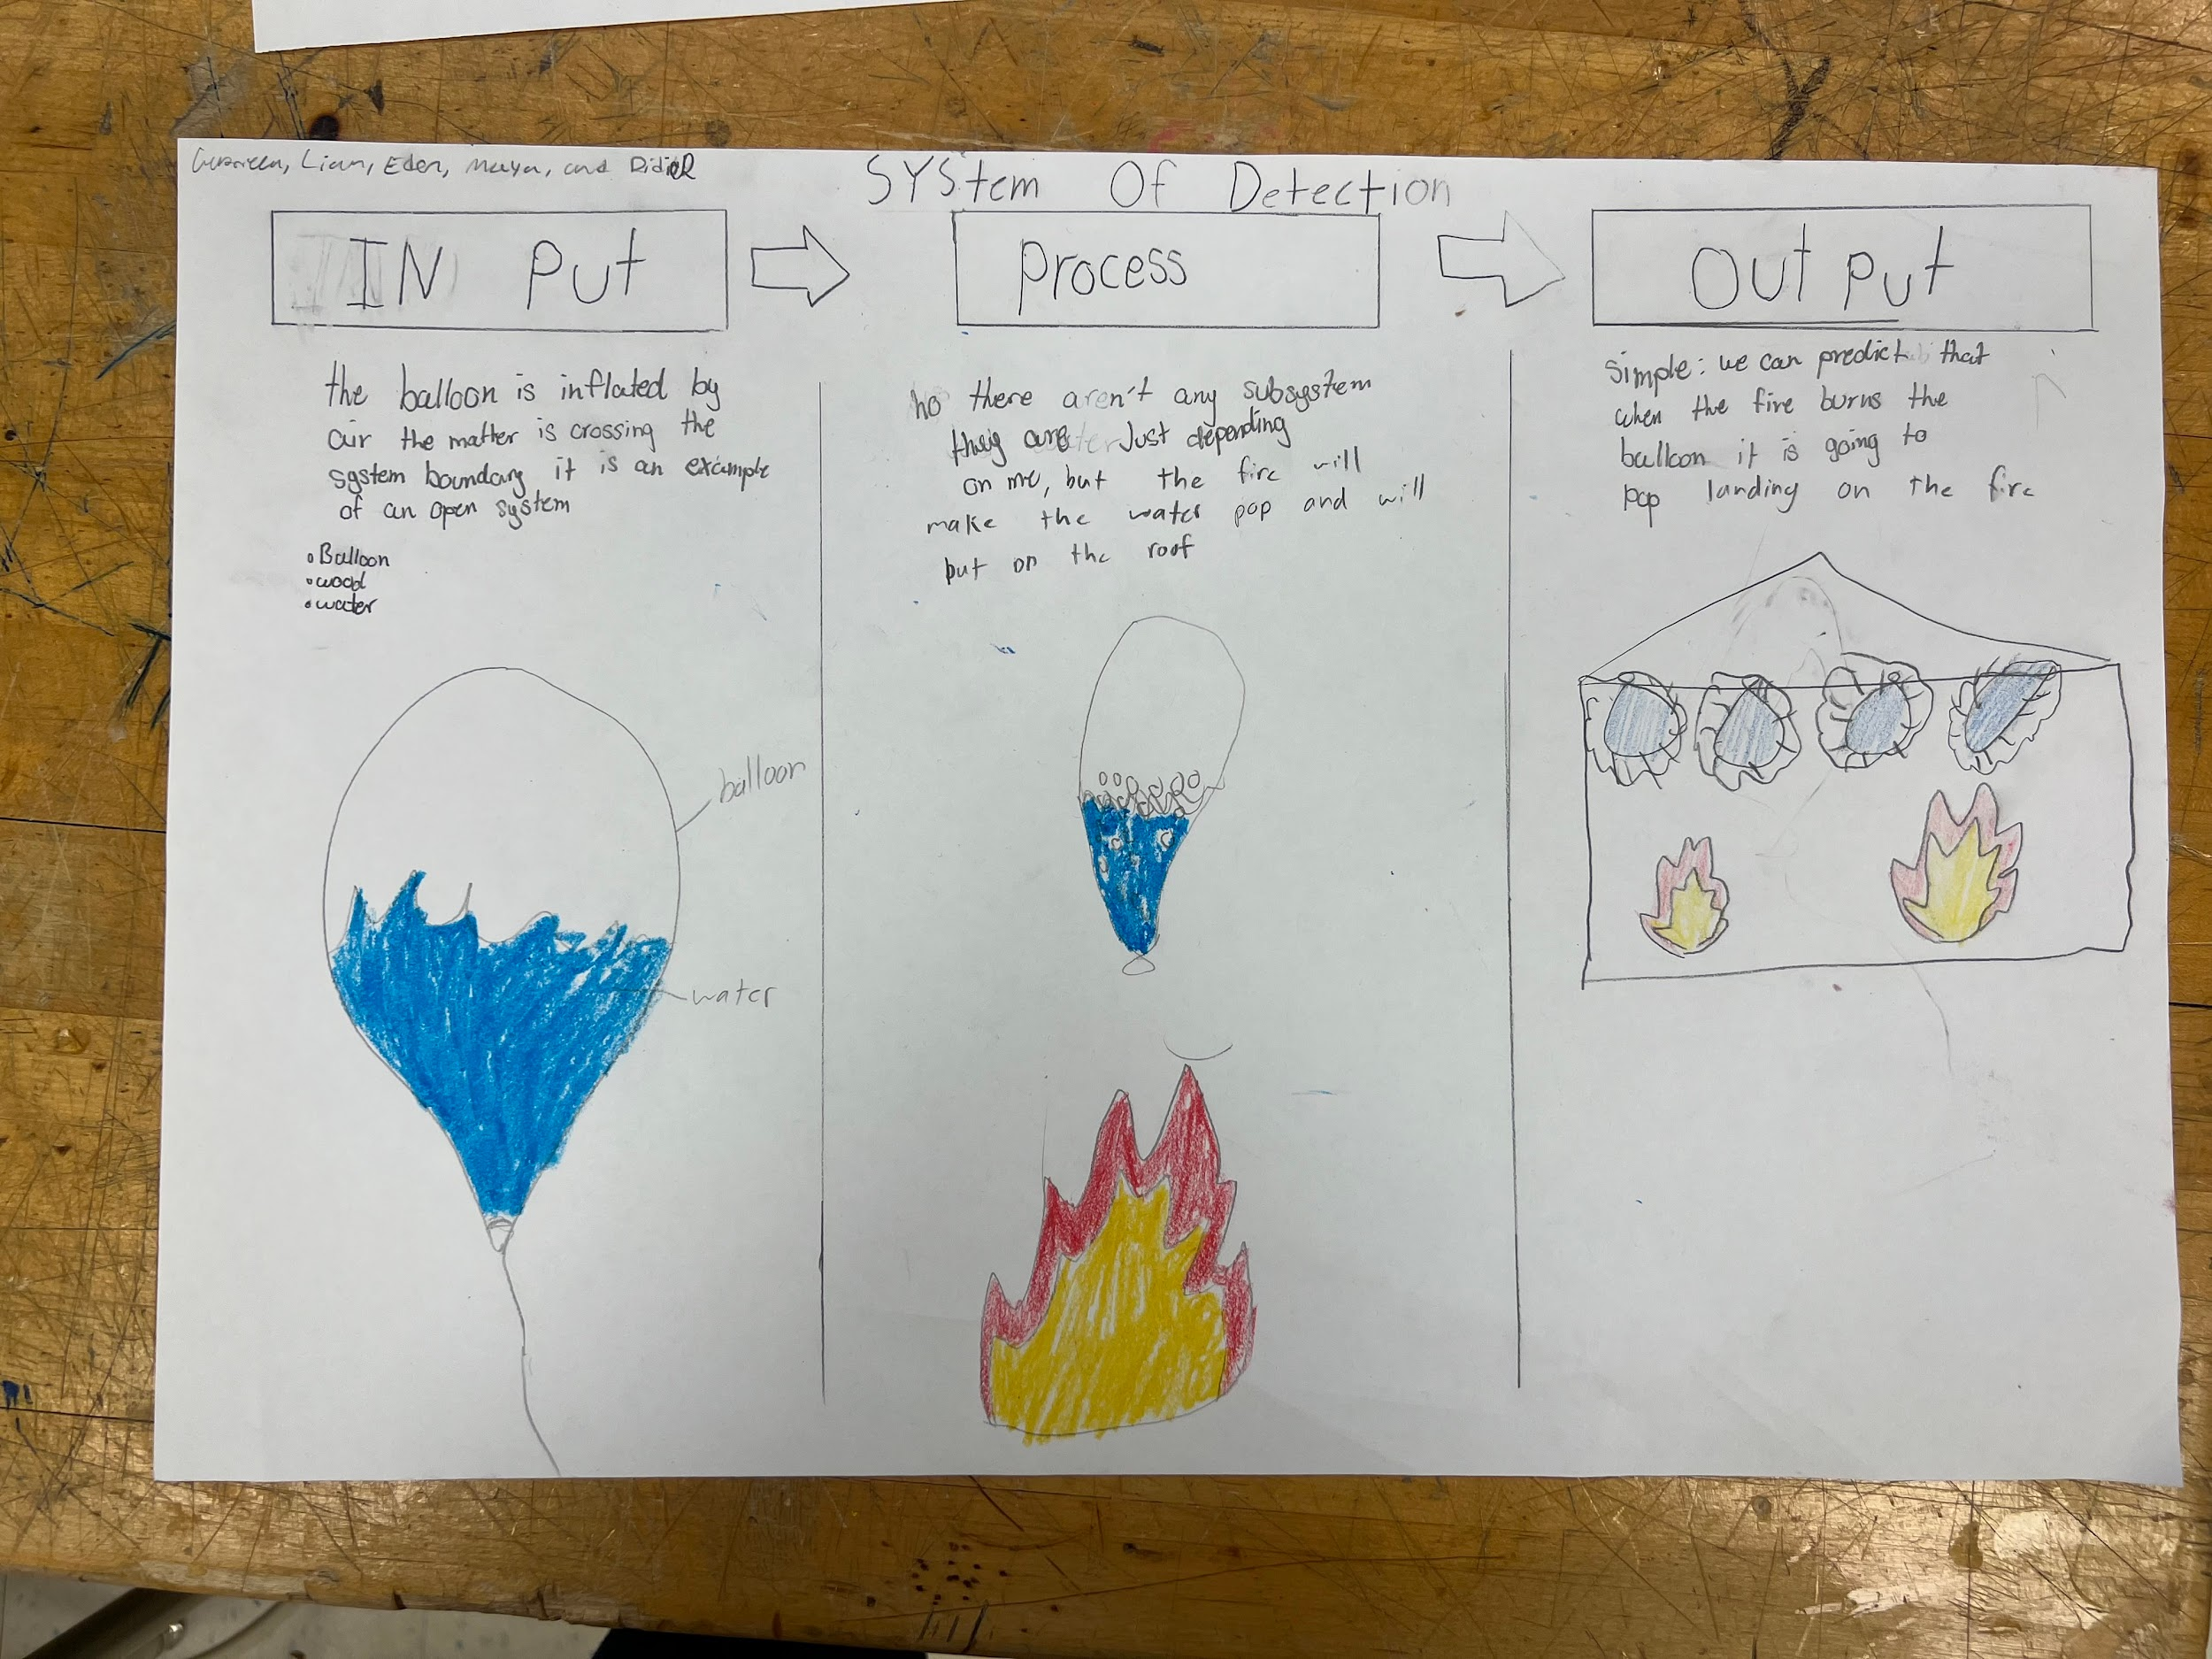 Liam, Eden, Maya, and Didier
SYStem Of Detection
IN Put
Process
Out Put
the balloon is inflated by
air the matter is crossing the
system boundary it is an example
of an open system
Balloon
wood
water
balloon
water
no there aren't any subsystem
are Just depending
on me, but the fire will
make the water pop and will
put on the roof
Simple: we can predict that
when the fire burns the
balloon it is going to
pop landing on the fire